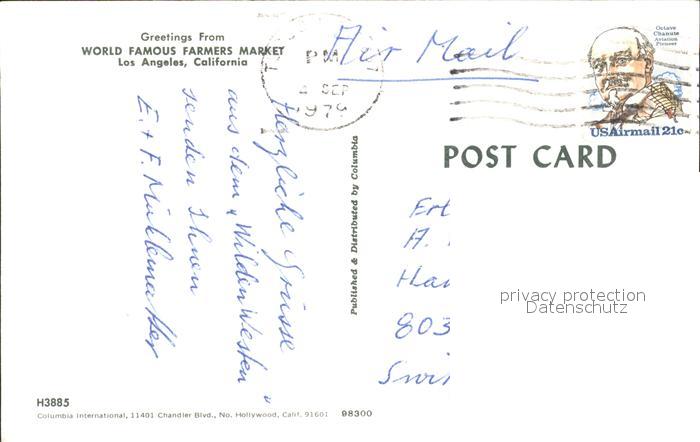 Greetings From
WORLD FAMOUS FARMERS MARKET
Los Angeles, California
PM
SEP
1979
Air Mail
Octave
Chanute
Aviation
Pioneer
USAirmail 21c
POST CARD
Herzliche Grüsse
aus dem "Wilden Westen"
senden Ihnen
E. + F. Mühlematter
Published & Distributed by Columbia
A.
803
privacy protection
Datenschutz
H3885
Columbia International, 11401 Chandler Blvd., No. Hollywood, Calif. 91601 98300